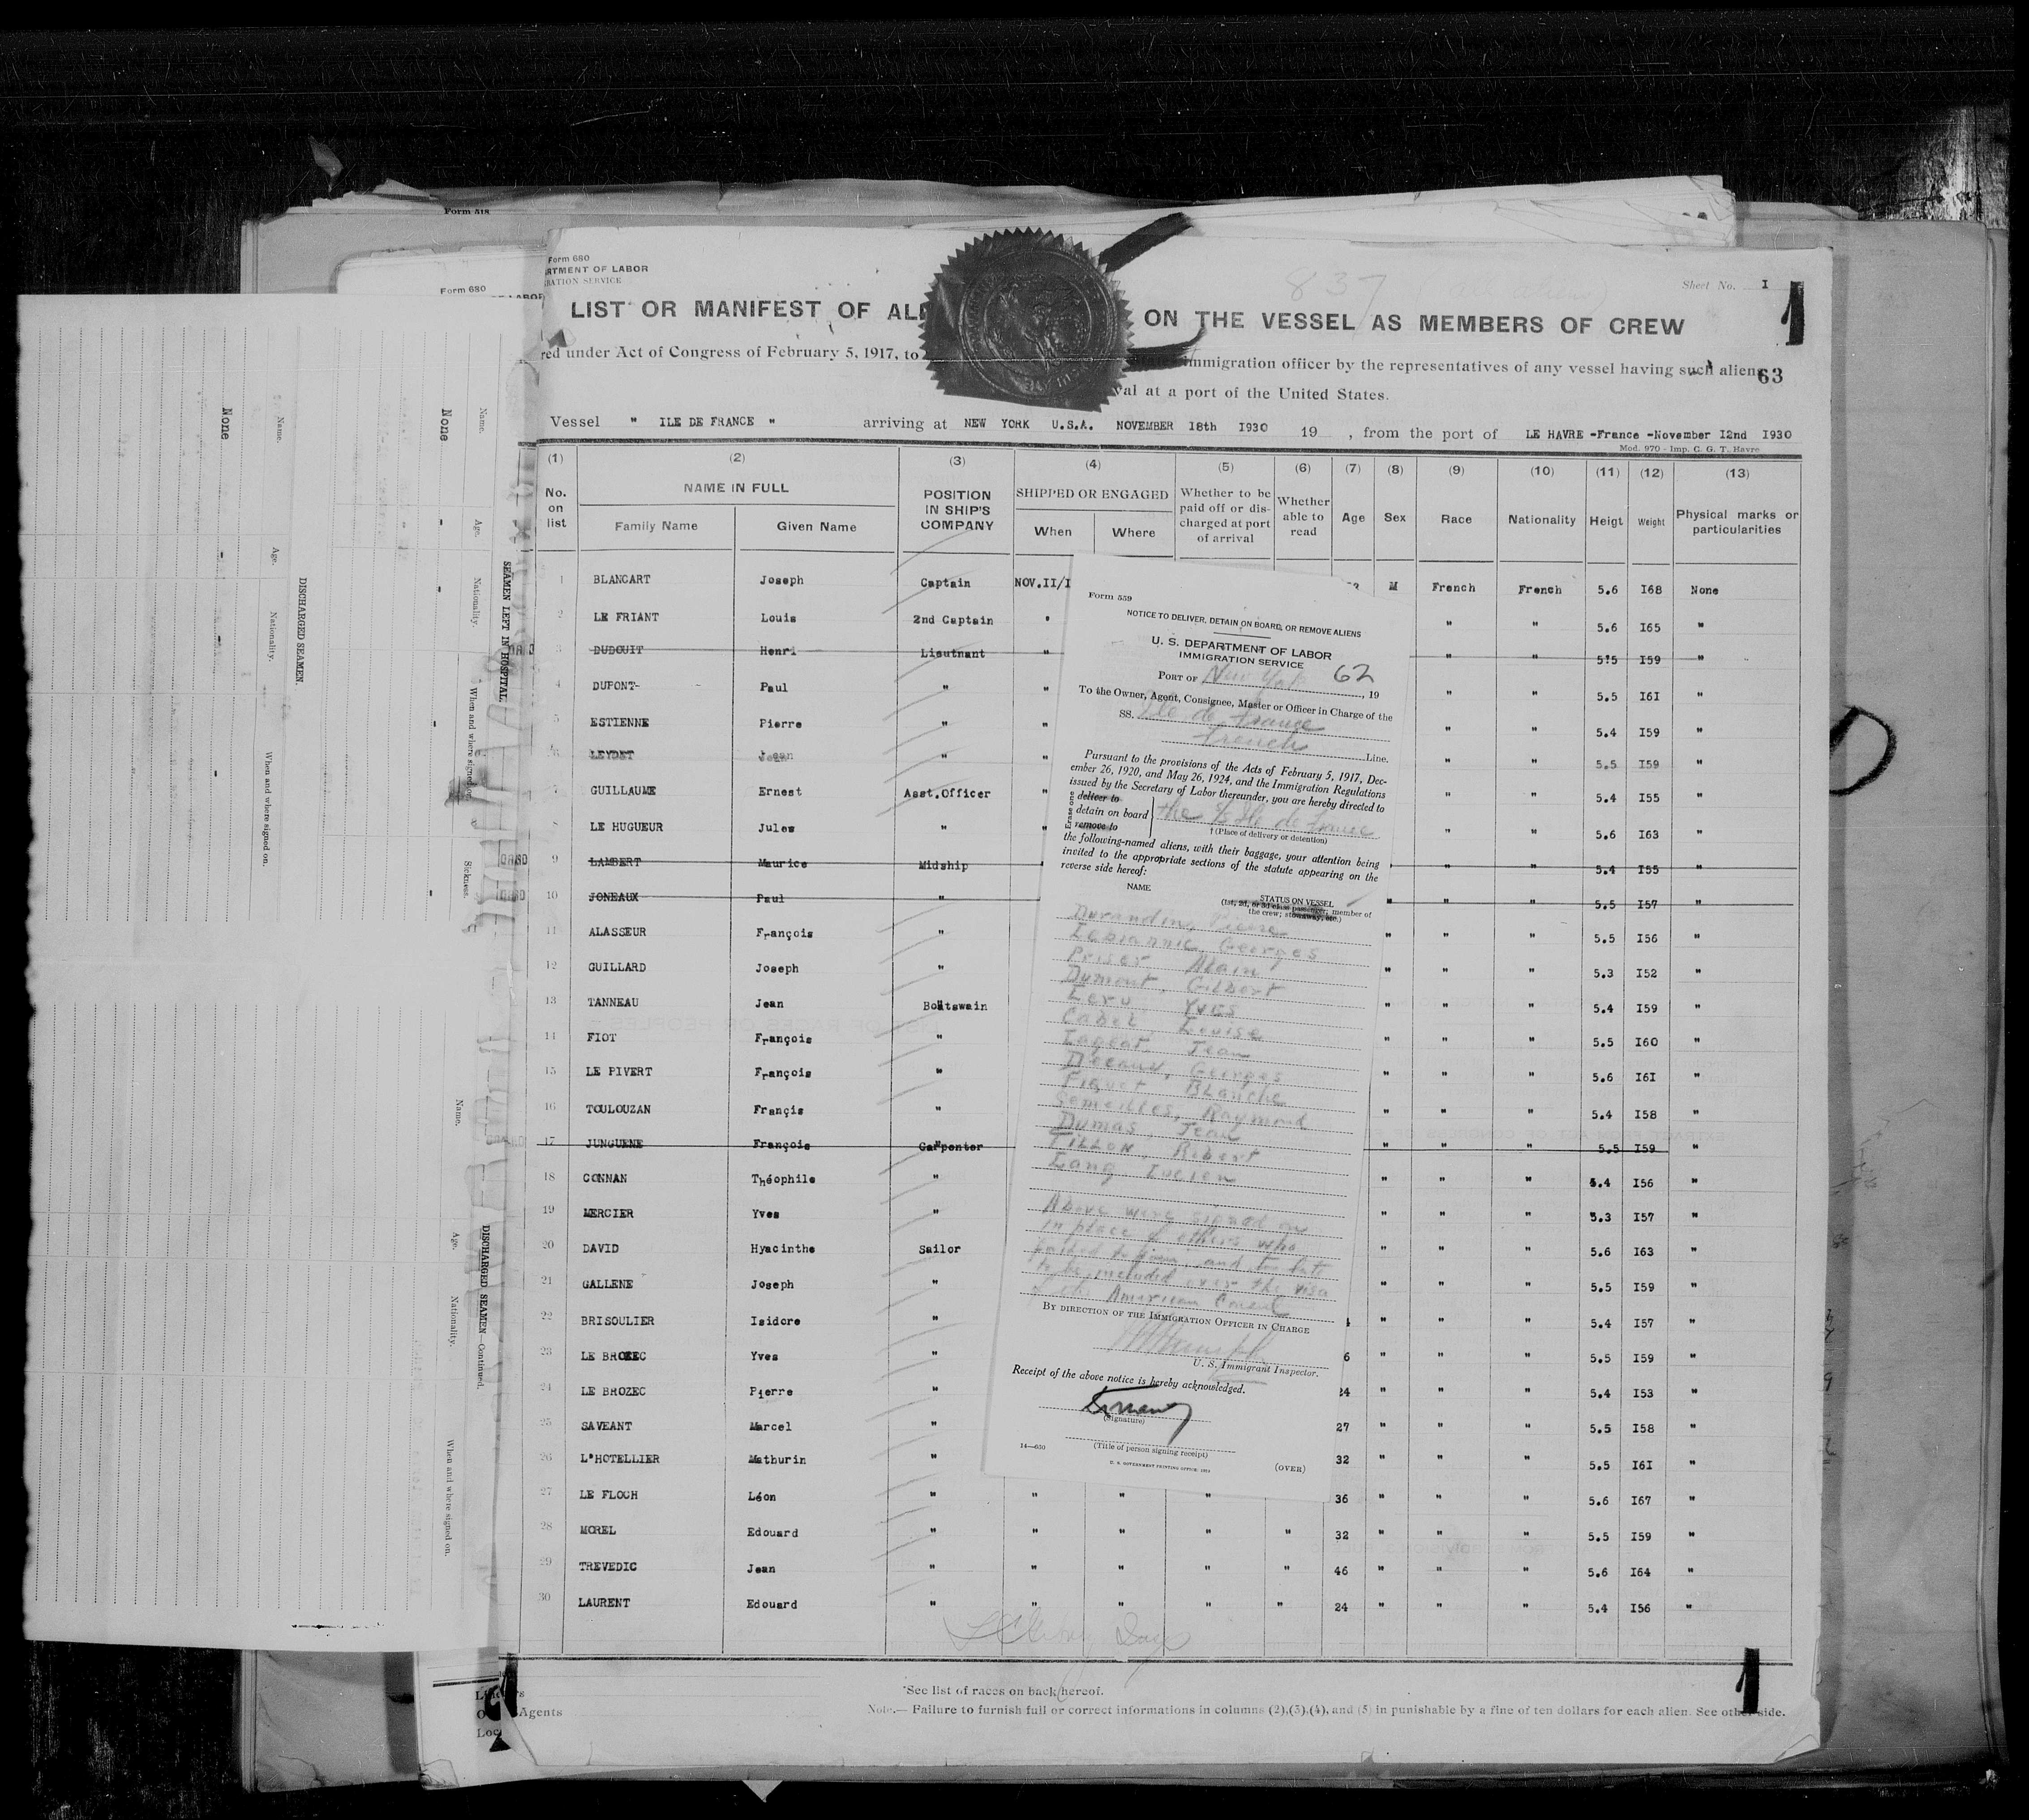 Form 518
Form 680
Form 680
RTMENT OF LABOR
RATION SERVICE
837
Sheet No. I
LIST OR MANIFEST OF ALI ON THE VESSEL AS MEMBERS OF CREW
red under Act of Congress of February 5, 1917, to immigration officer by the representatives of any vessel having such aliens
63
val at a port of the United States.
Vessel " ILE DE FRANCE " arriving at NEW YORK U.S.A. NOVEMBER 18th I930 19 , from the port of LE HAVRE -France -November I2nd I930
Mod. 970 - Imp. C. G. T. Havre
(1) (2) (3) (4) (5) (6) (7) (8) (9) (10) (11) (12) (13)
No. on list NAME IN FULL Family Name Given Name POSITION IN SHIP'S COMPANY SHIPPED OR ENGAGED When Where Whether to be paid off or discharged at port of arrival Whether able to read Age Sex Race Nationality Heigt Weight Physical marks or particularities
1 BLANCART Joseph Captain NOV.II/I M French French 5.6 I68 None
2 LE FRIANT Louis 2nd Captain " " " 5.6 I65 "
3 DUDOUIT Henri Lieutnant " " " 5.5 I59 "
4 DUPONT- - Paul " " " " 5.5 I6I "
5 ESTIENNE Pierre " " " " 5.4 I59 "
6 LEYDET Jean " " " " 5.5 I59 "
7 GUILLAUME Ernest Asst.Officer " " " 5.4 I55 "
8 LE HUGUEUR Jules " " " " 5.6 I63 "
9 LAMBERT Maurice Midship " " " 5.4 I55 "
10 JONEAUX Paul " " " " 5.5 I57 "
11 ALASSEUR François " " " " 5.5 I56 "
12 GUILLARD Joseph " " " " 5.3 I52 "
13 TANNEAU Jean Boatswain " " " 5.4 I59 "
14 FIOT François " " " " 5.5 I60 "
15 LE PIVERT François " " " " 5.6 I6I "
16 TOULOUZAN Françis " " " " 5.4 I58 "
17 JUNGUENE François Carpenter " " " 5.5 I59 "
18 CONNAN Théophile " " " " 5.4 I56 "
19 MERCIER Yves " " " " 5.3 I57 "
20 DAVID Hyacinthe Sailor " " " 5.6 I63 "
21 GALLENE Joseph " " " " 5.5 I59 "
22 BRISOULIER Isidore " " " " 5.4 I57 "
23 LE BROZEC Yves " 6 " " " 5.5 I59 "
24 LE BROZEC Pierre " 24 " " " 5.4 I53 "
25 SAVEANT Marcel " 27 " " " 5.5 I58 "
26 L'HOTELLIER Mathurin " 32 " " " 5.5 I6I "
27 LE FLOCH Léon " " " " 36 " " " 5.6 I67 "
28 MOREL Edouard " " " " " 32 " " " 5.5 I59 "
29 TREVEDIC Jean " " " " " 46 " " " 5.6 I64 "
30 LAURENT Edouard " " " " " 24 " " " 5.4 I56 "
*See list of races on back hereof.
Note.— Failure to furnish full or correct informations in columns (2),(3),(4), and (5) in punishable by a fine of ten dollars for each alien. See other side.
Agents
Form 559
NOTICE TO DELIVER, DETAIN ON BOARD, OR REMOVE ALIENS
U. S. DEPARTMENT OF LABOR
IMMIGRATION SERVICE
62
PORT OF New York , 19
To the Owner, Agent, Consignee, Master or Officer in Charge of the
SS. Ile de France
French Line.
Pursuant to the provisions of the Acts of February 5, 1917, Dec-
ember 26, 1920, and May 26, 1924, and the Immigration Regulations
issued by the Secretary of Labor thereunder, you are hereby directed to
Erase one
deliver to
detain on board the Ile de France
remove to
† (Place of delivery or detention)
the following-named aliens, with their baggage, your attention being
invited to the appropriate sections of the statute appearing on the
reverse side hereof:
NAME STATUS ON VESSEL
(1st, 2d, or 3d class passenger; member of
the crew; stowaway, etc.)
Durandin, Pierre
Lebiannic, Georges
Priser Alain
Dumont, Gilbert
Leru Yves
Cadel Louise
Lageat, Jean
Decaux, Georges
Piquet Blanche
Semeilles, Raymond
Dumas, Jean
Tillon, Robert
Lang Lucien
Above were signed on
in place of others who
failed to join, and too late
to be included over the visa
of the American Consul
BY DIRECTION OF THE IMMIGRATION OFFICER IN CHARGE
U. S. Immigrant Inspector.
Receipt of the above notice is hereby acknowledged.
(Signature)
(Title of person signing receipt)
14—630
U. S. GOVERNMENT PRINTING OFFICE
(OVER)
SEAMEN LEFT IN HOSPITAL.
Name. Age. Nationality. When and where signed on. Sickness.
None
DISCHARGED SEAMEN.
Name. Age. Nationality. When and where signed on.
None
DISCHARGED SEAMEN—Continued.
Name. Age. Nationality. When and where signed on.